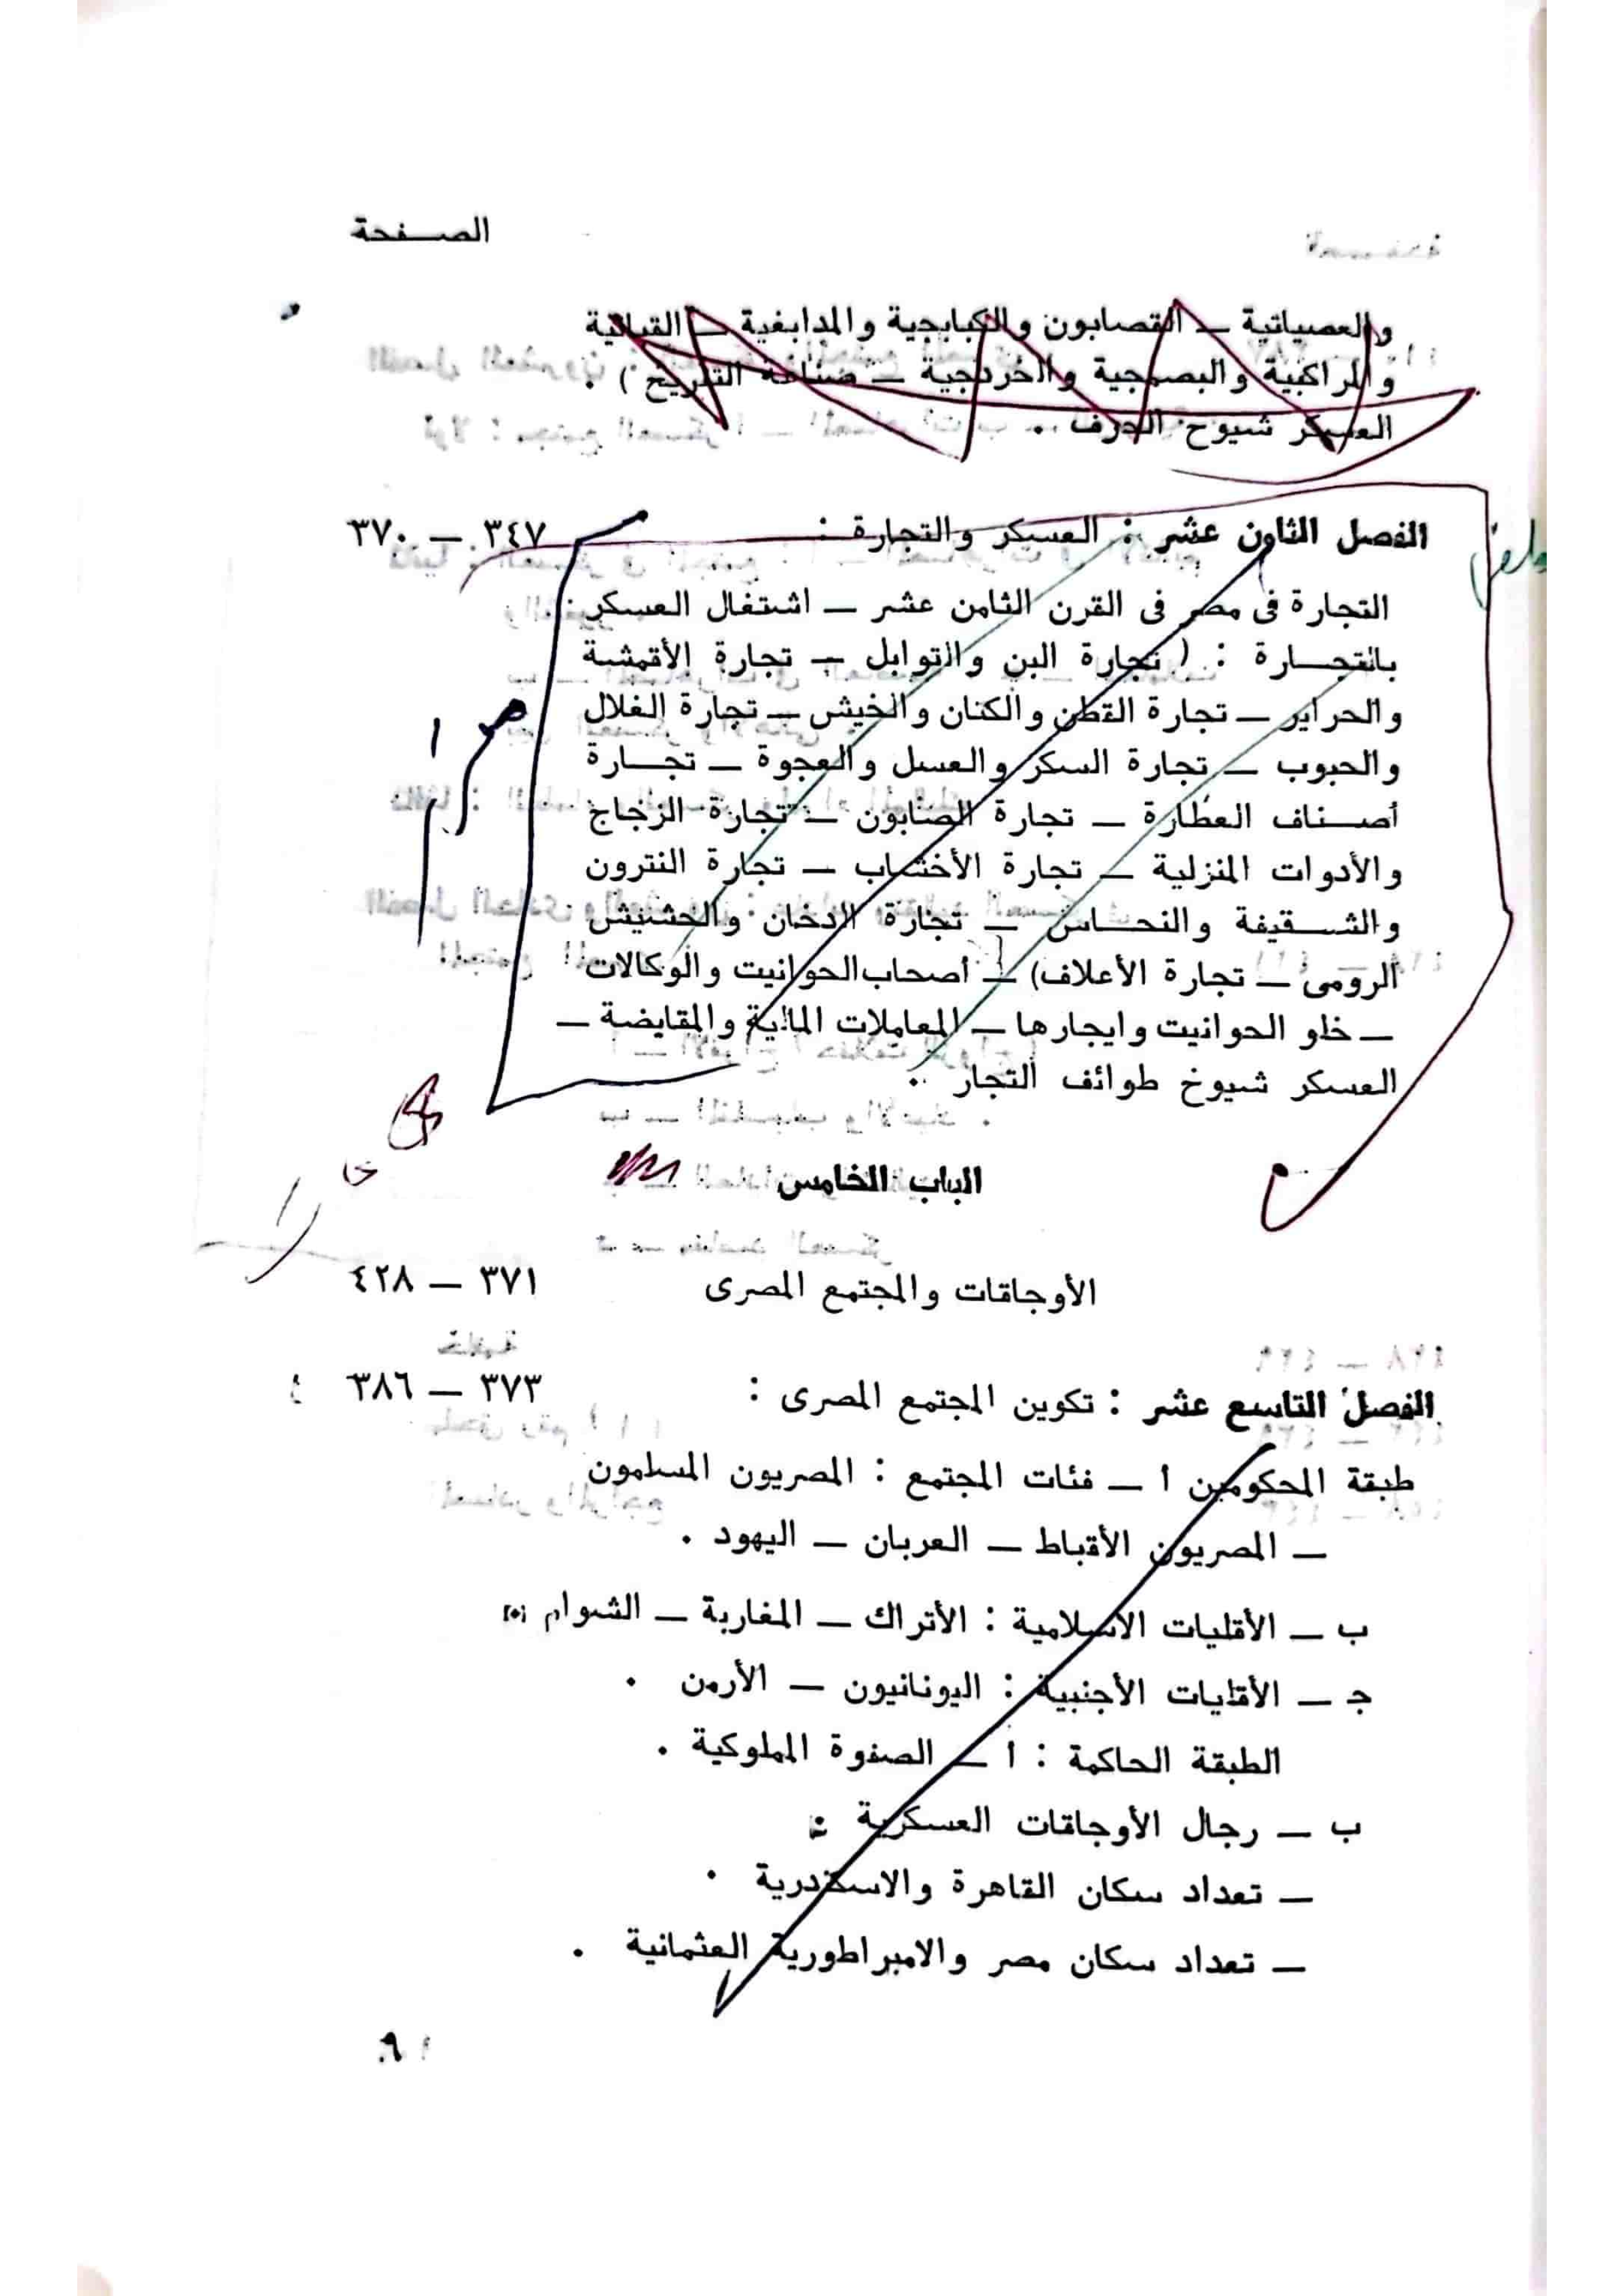 الصفحة
والعصبياتية — القصابون والكبابجية والمدابغية — القبانية
والمراكبية والبصمجية والخردجية — صناعة التفريخ ) .
العسكر شيوخ الحرف .
الفصل الثامن عشر : العسكر والتجارة : ٣٤٧ — ٣٧٠
التجارة فى مصر فى القرن الثامن عشر — اشتغال العسكر
بالتجارة : ( تجارة البن والتوابل — تجارة الأقمشة
والحراير — تجارة القطن والكتان والخيش — تجارة الغلال
والحبوب — تجارة السكر والعسل والعجوة — تجارة
أصناف العطارة — تجارة الصابون — تجارة الزجاج
والأدوات المنزلية — تجارة الأخشاب — تجارة النترون
والشقيفة والنحاس — تجارة الدخان والحشيش
الرومى — تجارة الأعلاف) — أصحاب الحوانيت والوكالات
— خلو الحوانيت وايجارها — المعاملات المالية والمقايضة —
العسكر شيوخ طوائف التجار .
الباب الخامس
الأوجاقات والمجتمع المصرى ٣٧١ — ٤٢٨
الفصل التاسع عشر : تكوين المجتمع المصرى : ٣٧٣ — ٣٨٦
طبقة المحكومين أ — فئات المجتمع : المصريون المسلمون
— المصريون الأقباط — العربان — اليهود .
ب — الأقليات الاسلامية : الأتراك — المغاربة — الشوام
ج — الأقليات الأجنبية : اليونانيون — الأرمن .
الطبقة الحاكمة : أ — الصفوة المملوكية .
ب — رجال الأوجاقات العسكرية :
— تعداد سكان القاهرة والاسكندرية .
— تعداد سكان مصر والامبراطورية العثمانية .
٩